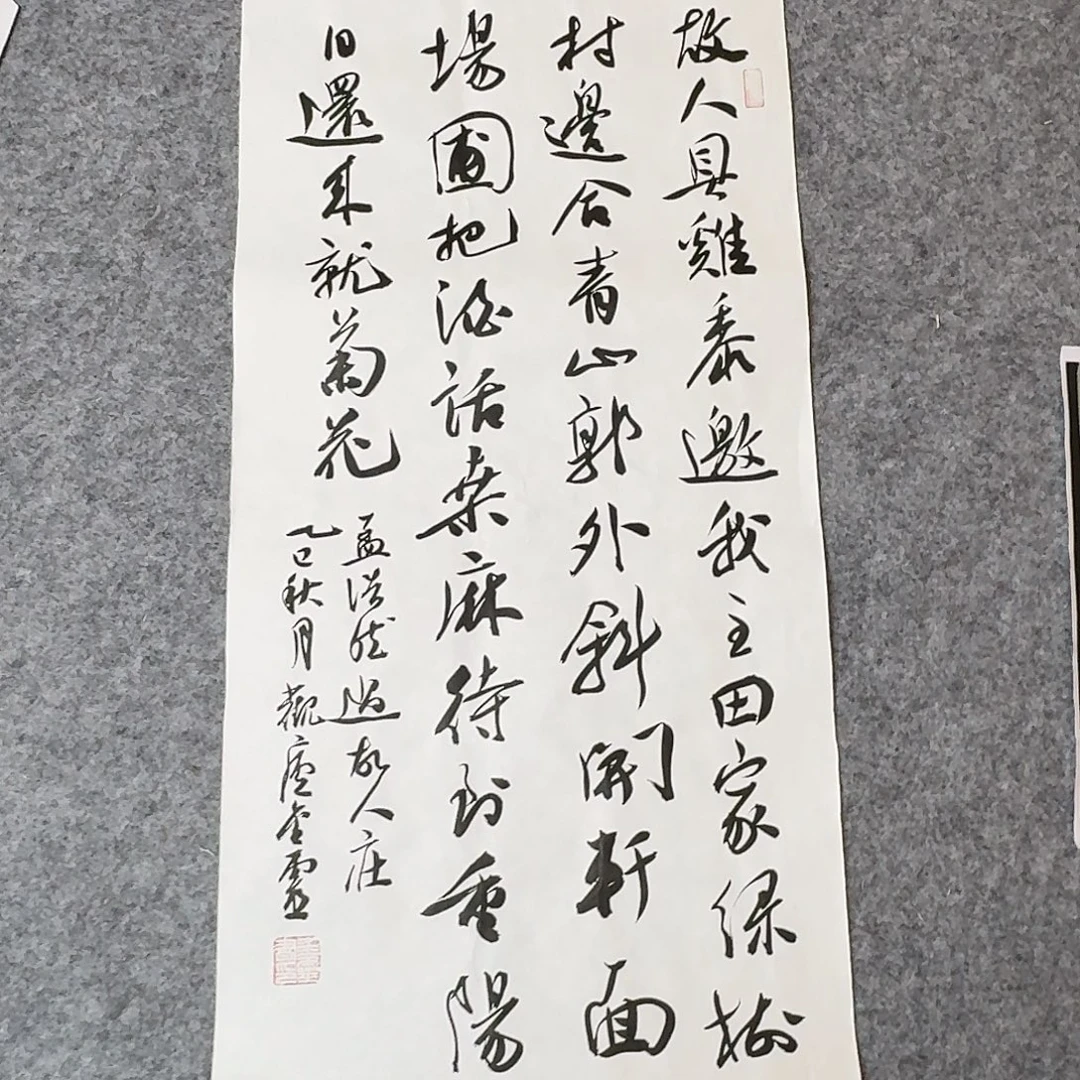 故人具雞黍邀我至田家绿樹
村邊合青山郭外斜開軒面
場圃把酒話桑麻待到重陽
日還來就菊花
孟浩然過故人庄
乙巳秋月